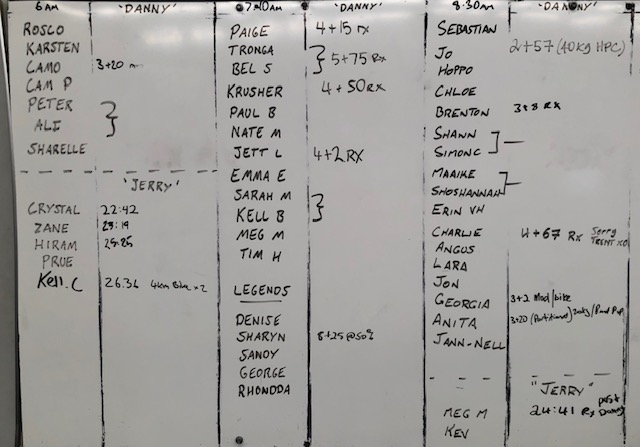 6AM 'DANNY'
ROSCO
KARSTEN
CAMO 3+20
CAM P
PETER
ALI
SHARELLE
'JERRY'
CRYSTAL 22:42
ZANE 25:19
HIRAM 25:25
PRUE
KELL.C 26.36 4km Bike x2
7:10AM 'DANNY'
PAIGE 4+15 rx
TRONGA
BEL S 5+75 Rx
KRUSHER 4+50RX
PAUL B
NATE M
JETT L 4+2RX
EMMA E
SARAH M
KELL B
MEG M
TIM H
LEGENDS
DENISE
SHARYN 8+25@50%
SANDY
GEORGE
RHONDDA
8:30AM 'DANNY'
SEBASTIAN
JO 2+57 (40kg HPC)
HOPPO
CHLOE
BRENTON 3+8 RX
SHANN
SIMONC
MAAIKE
SHOSHANNAH
ERIN VH
CHARLIE 4+67 Rx Sorry TRENT XO
ANGUS
LARA
JON
GEORGIA 3+2 Mod/bike
ANITA 3+20 (Partitioned)
JANN-NELL
"JERRY"
MEG M 24:41 Rx post Danny
KEV